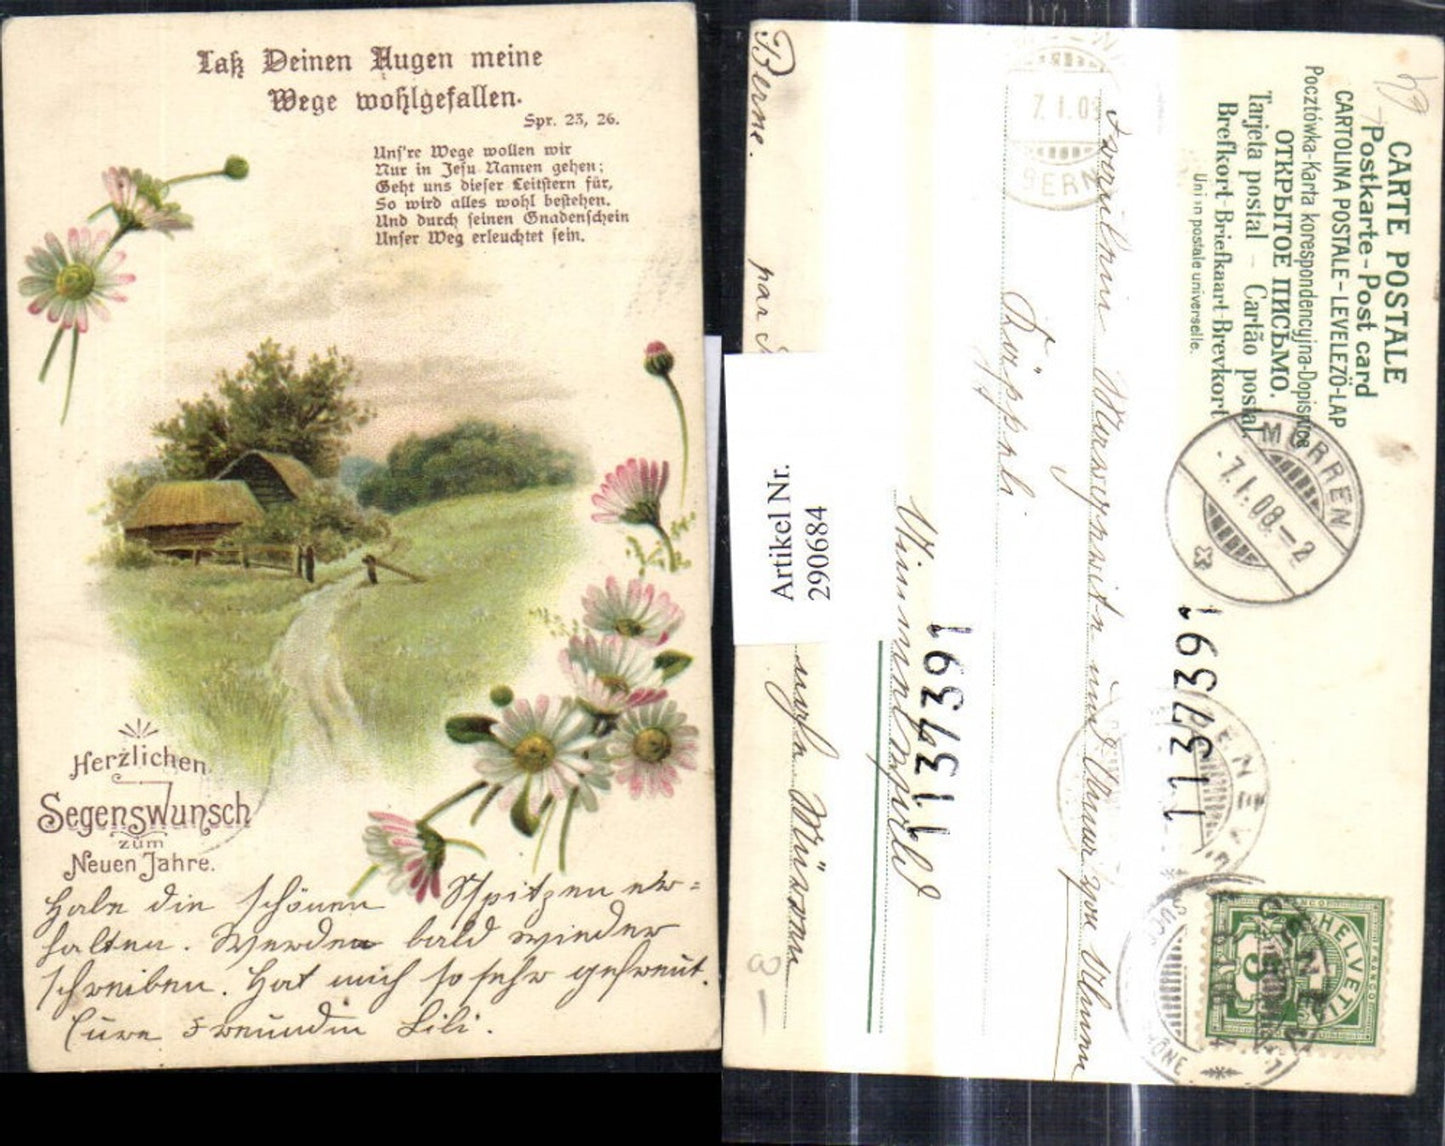 Laß Deinen Augen meine
Wege wohlgefallen.
Spr. 23, 26.
Uns're Wege wollen wir
Nur in Jesu Namen gehen;
Geht uns dieser Leitstern für,
So wird alles wohl bestehen.
Und durch seinen Gnadenschein
Unser Weg erleuchtet sein.
Herzlichen
Segenswunsch
zum
Neuen Jahre.
Habe die schönen Spitzen er=
halten. Werden bald wieder
schreiben. Hat mich so sehr gefreut.
Eure Freundin Lili.
CARTE POSTALE
Postkarte-Post card
CARTOLINA POSTALE-LEVELEZÖ-LAP
Pocztówka-Karta korespondencyjna-Dopisnice
ОТКРЫТОЕ ПИСЬМО.
Tarjeta postal - Cartão postal
Brefkort-Briefkaart-Brevkort
Union postale universelle.
MÜRREN
7.I.08.-2
7.I.08
BERN
HELVETIA
FRANCO
5
1137391
1137391
Artikel Nr.
290684
Fräulein
und
Berne.
par
Mürren